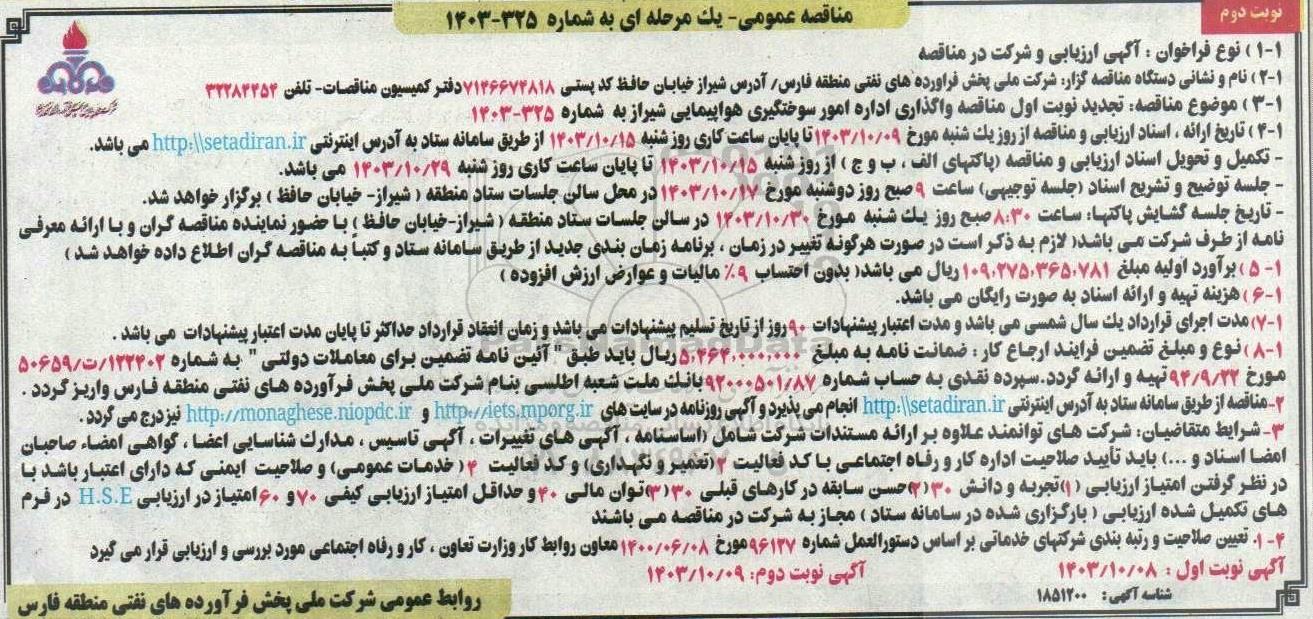 نوبت دوم
مناقصه عمومی- یك مرحله ای به شماره ۳۲۵-۱۴۰۳
۱-۱ ) نوع فراخوان : آگهی ارزیابی و شرکت در مناقصه
۱-۲ ) نام و نشانی دستگاه مناقصه گزار: شرکت ملی پخش فراورده های نفتی منطقه فارس/ آدرس شیراز خیابان حافظ کد پستی ۷۱۴۶۶۷۴۸۱۸دفتر کمیسیون مناقصات- تلفن ۳۲۲۸۴۲۵۴
۱-۳ ) موضوع مناقصه: تجدید نوبت اول مناقصه واگذاری اداره امور سوختگیری هواپیمایی شیراز به شماره ۳۲۵-۱۴۰۳
۱-۴ ) تاریخ ارائه ، اسناد ارزیابی و مناقصه از روز یك شنبه مورخ ۱۴۰۳/۱۰/۰۹ تا پایان ساعت کاری روز شنبه ۱۴۰۳/۱۰/۱۵ از طریق سامانه ستاد به آدرس اینترنتی http:\\setadiran.ir می باشد.
- تکمیل و تحویل اسناد ارزیابی و مناقصه (پاکتهای الف ، ب و ج ) از روز شنبه ۱۴۰۳/۱۰/۱۵ تا پایان ساعت کاری روز شنبه ۱۴۰۳/۱۰/۲۹ می باشد.
- جلسه توضیح و تشریح اسناد (جلسه توجیهی) ساعت ۹ صبح روز دوشنبه مورخ ۱۴۰۳/۱۰/۱۷ در محل سالن جلسات ستاد منطقه ( شیراز- خیابان حافظ ) برگزار خواهد شد.
- تاریخ جلسه گشایش پاکتها: ساعت ۸:۳۰ صبح روز یك شنبه مورخ ۱۴۰۳/۱۰/۳۰ در سالن جلسات ستاد منطقه ( شیراز-خیابان حافظ ) با حضور نماینده مناقصه گران و با ارائه معرفی
نامه از طرف شرکت می باشد( لازم به ذکر است در صورت هرگونه تغییر در زمان ، برنامه زمان بندی جدید از طریق سامانه ستاد و کتباً به مناقصه گران اطلاع داده خواهد شد )
۱- ۵ ) برآورد اولیه مبلغ ۱۰۹،۲۷۵،۳۶۵،۷۸۱ ریال می باشد( بدون احتساب ۹٪ مالیات و عوارض ارزش افزوده )
۱-۶ ) هزینه تهیه و ارائه اسناد به صورت رایگان می باشد.
۱-۷) مدت اجرای قرارداد یك سال شمسی می باشد و مدت اعتبار پیشنهادات ۹۰ روز از تاریخ تسلیم پیشنهادات می باشد و زمان انعقاد قرارداد حداکثر تا پایان مدت اعتبار پیشنهادات می باشد .
۱-۸ ) نوع و مبلغ تضمین فرایند ارجاع کار : ضمانت نامه به مبلغ ۵،۴۶۴،۰۰۰،۰۰۰ ریال باید طبق " آئین نامه تضمین برای معاملات دولتی " به شماره ۱۲۳۴۰۲/ت/۵۰۶۵۹
مورخ ۹۴/۹/۲۲ تهیه و ارائه گردد.سپرده نقدی به حساب شماره ۹۲۰۰۰۵۰۱/۸۷ بانك ملت شعبه اطلسی بنام شرکت ملی پخش فرآورده های نفتی منطقه فارس واریز گردد .
۲-مناقصه از طریق سامانه ستاد به آدرس اینترنتی http:\\setadiran.ir انجام می پذیرد و آگهی روزنامه در سایت های http://iets.mporg.ir و http://monaghese.niopdc.ir نیز درج می گردد .
۳- شرایط متقاضیان: شرکت های توانمند علاوه بر ارائه مستندات شرکت شامل (اساسنامه ، آگهی های تغییرات ، آگهی تاسیس ، مدارك شناسایی اعضا ، گواهی امضاء صاحبان
امضا اسناد و ...) باید تأیید صلاحیت اداره کار و رفاه اجتماعی با کد فعالیت ۲ (تعمیر و نگهداری) و کد فعالیت ۴ ( خدمات عمومی) و صلاحیت ایمنی که دارای اعتبار باشد با
در نظر گرفتن امتیاز ارزیابی ( ۱)تجربه و دانش ۳۰ (۲)حسن سابقه در کارهای قبلی ۳۰ (۳)توان مالی ۴۰ و حداقل امتیاز ارزیابی کیفی ۷۰ و ۶۰ امتیاز در ارزیابی H.S.E در فرم
های تکمیل شده ارزیابی ( بارگزاری شده در سامانه ستاد ) مجاز به شرکت در مناقصه می باشند
۴-۱. تعیین صلاحیت و رتبه بندی شرکتهای خدماتی بر اساس دستورالعمل شماره ۹۶۱۲۷ مورخ ۱۴۰۰/۰۶/۰۸ معاون روابط کار وزارت تعاون ، کار و رفاه اجتماعی مورد بررسی و ارزیابی قرار می گیرد
آگهی نوبت اول : ۱۴۰۳/۱۰/۰۸ آگهی نوبت دوم: ۱۴۰۳/۱۰/۰۹
شناسه آگهی: ۱۸۵۱۲۰۰
روابط عمومی شرکت ملی پخش فرآورده های نفتی منطقه فارس